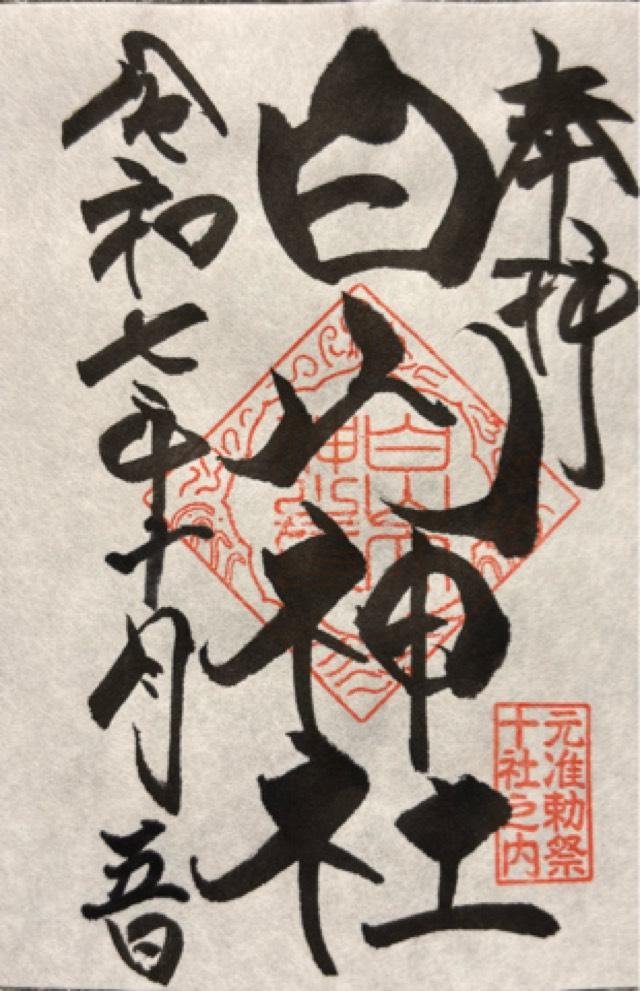 奉拝
元准勅祭
十社之内
白山神社
令和七年十月五日